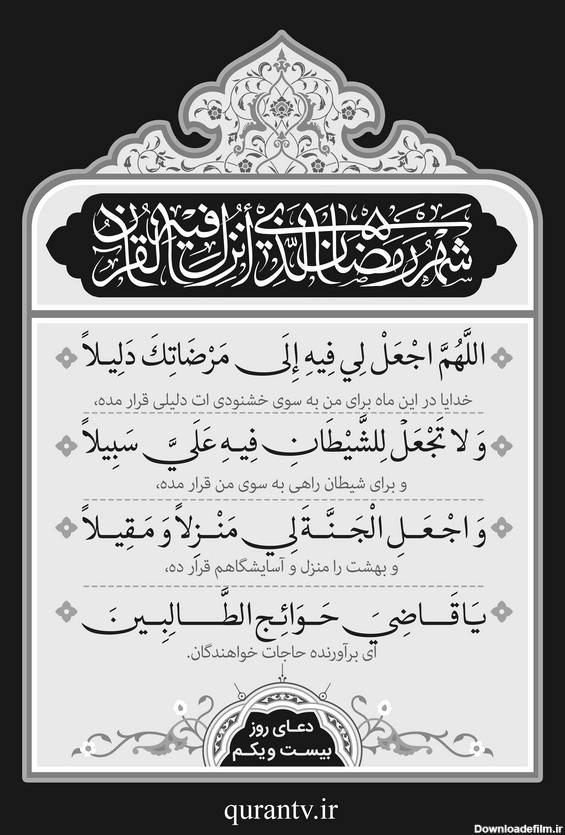 شهر رمضان الذي أنزل فيه القرآن
اللَّهُمَّ اجْعَلْ لِي فِيهِ إِلَى مَرْضَاتِكَ دَلِيلاً
خدایا در این ماه برای من به سوی خشنودی ات دلیلی قرار مده،
وَ لا تَجْعَلْ لِلشَّيْطَانِ فِيهِ عَلَيَّ سَبِيلاً
و برای شیطان راهی به سوی من قرار مده،
وَ اجْعَلِ الْجَنَّةَ لِي مَنْزِلاً وَ مَقِيلاً
و بهشت را منزل و آسایشگاهم قرار ده،
يَا قَاضِيَ حَوَائِجِ الطَّالِبِينَ
ای برآورنده حاجات خواهندگان.
دعای روز
بیست و یکم
qurantv.ir
Downloadefilm.ir